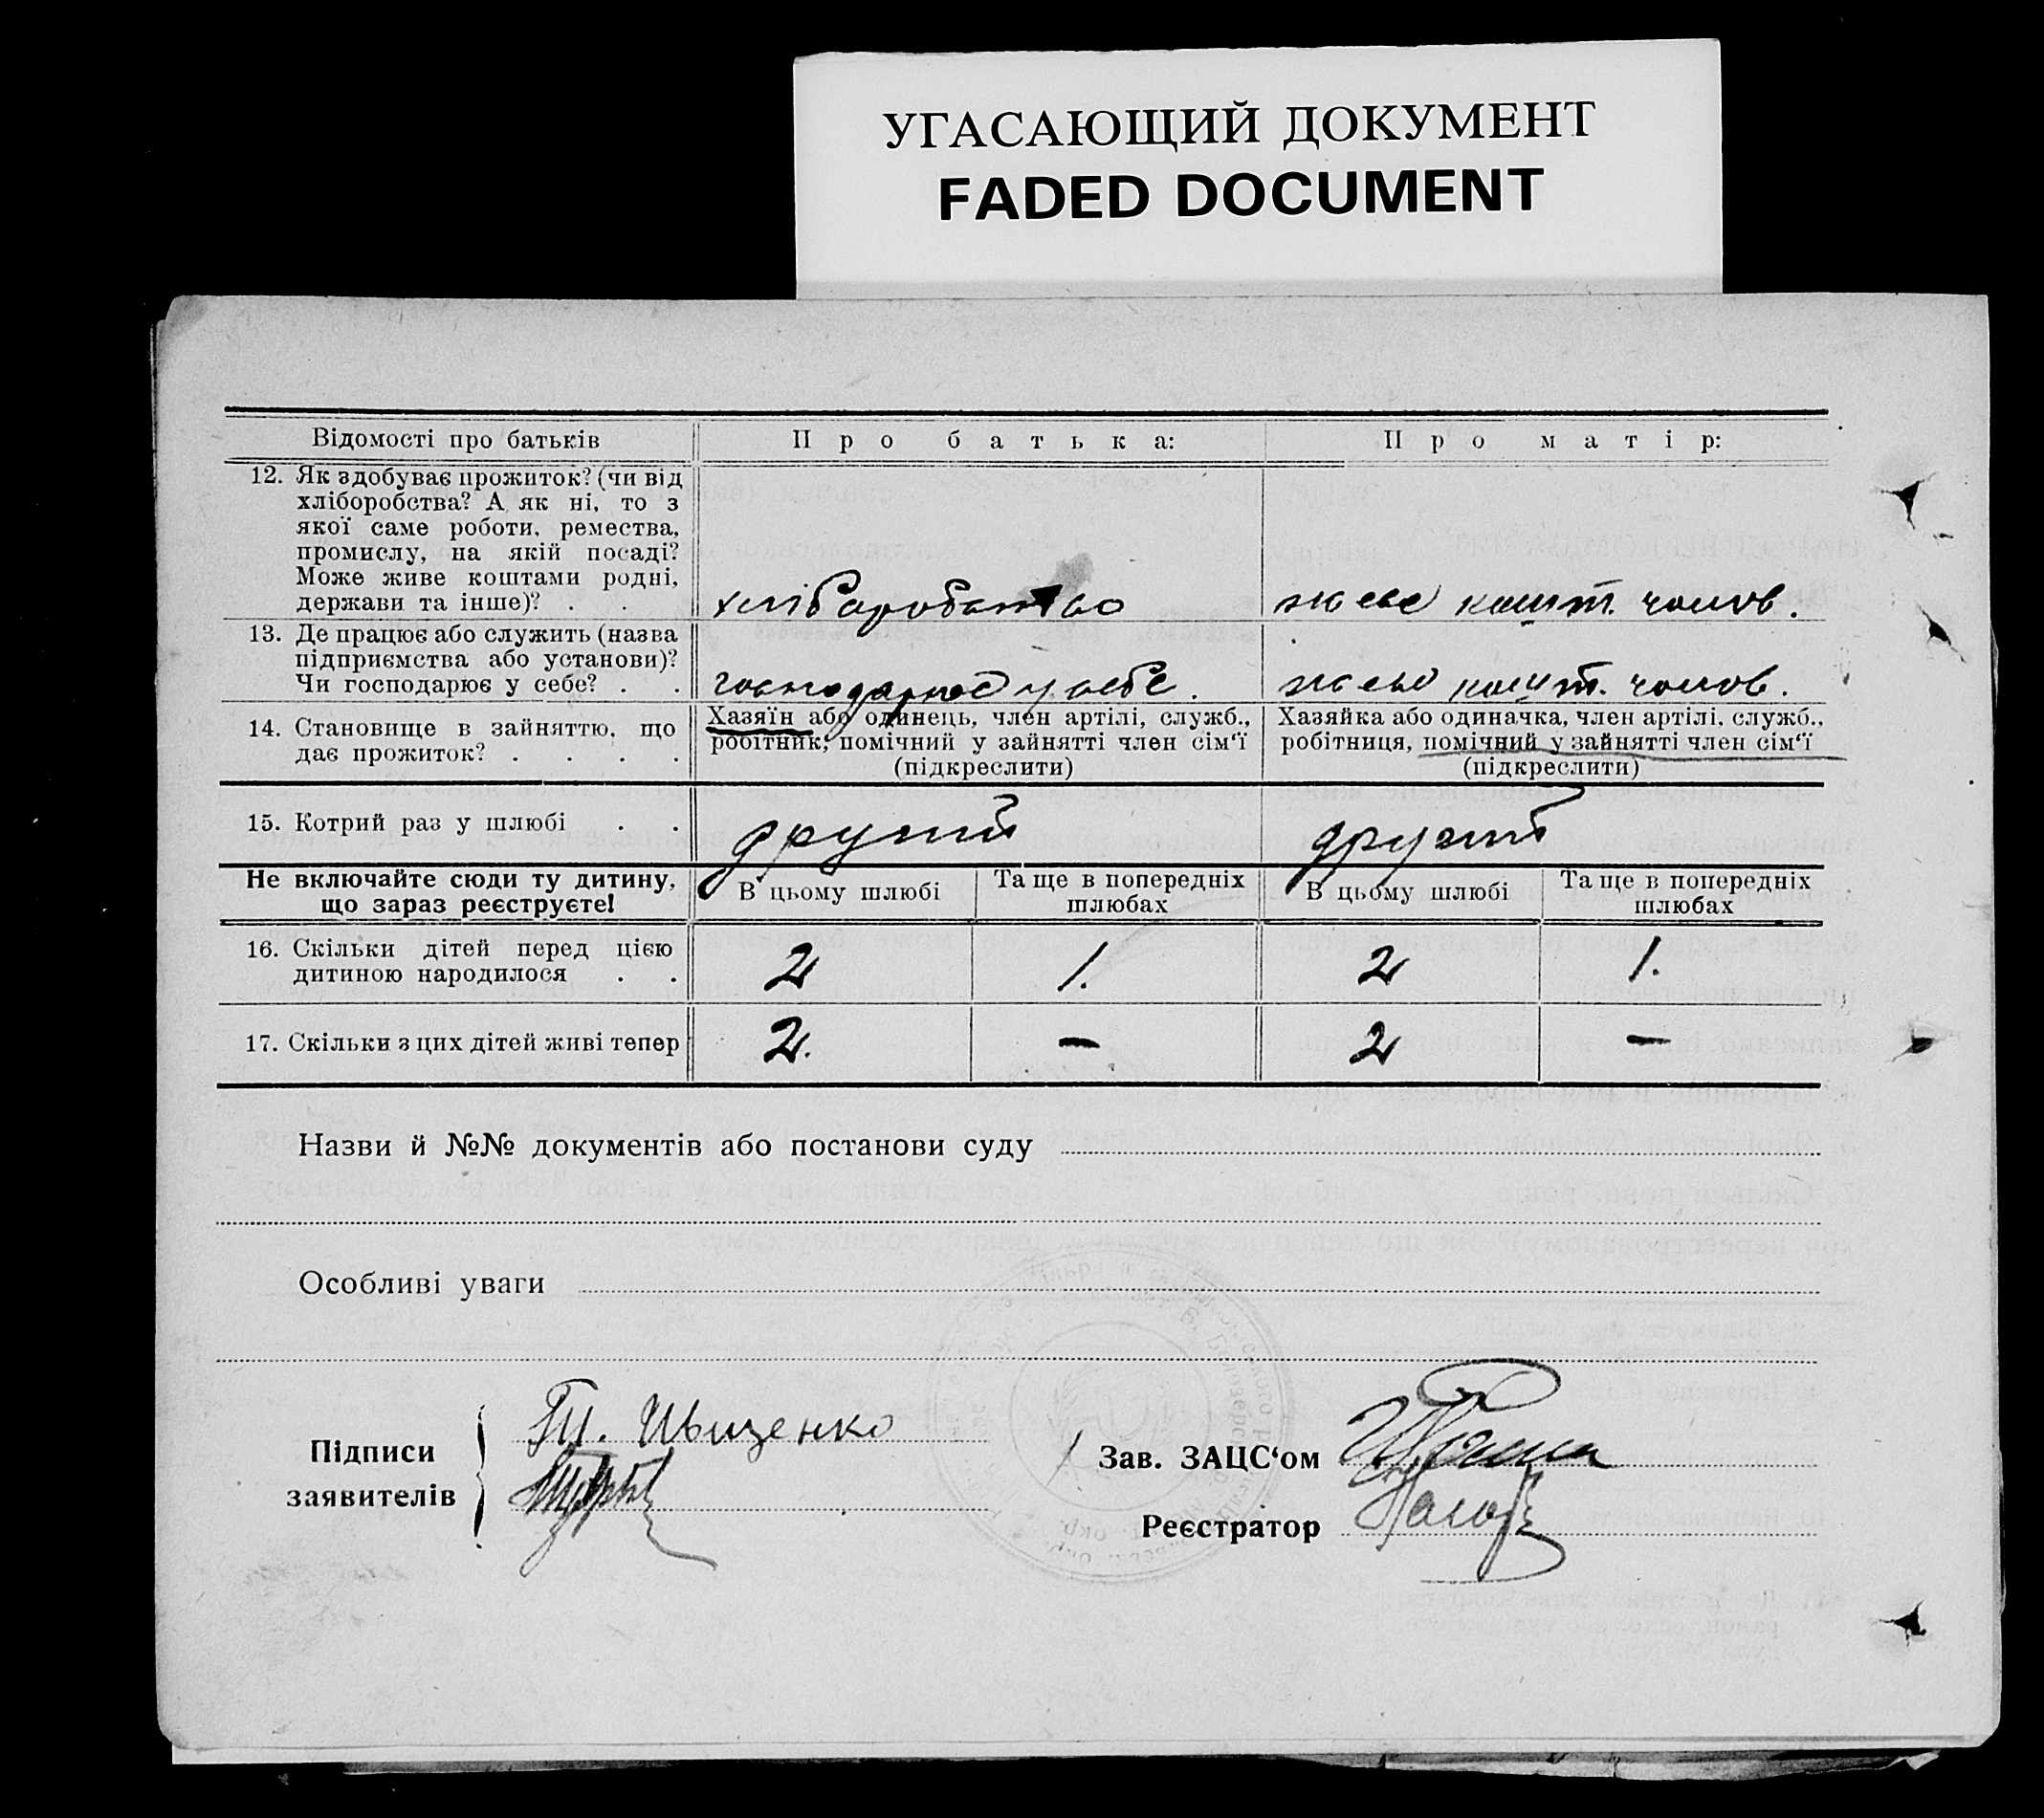 УГАСАЮЩИЙ ДОКУМЕНТ
FADED DOCUMENT
Відомості про батьків
Про батька:
Про матір:
12. Як здобуває прожиток? (чи від
хліборобства? А як ні, то з
якої саме роботи, ремества,
промислу, на якій посаді?
Може живе коштами родні,
держави та інше)? . .
хліборобство
живе кошт. чолов.
13. Де працює або служить (назва
підприємства або установи)?
Чи господарює у себе? . .
господарює у себе.
живе кошт. чолов.
14. Становище в зайняттю, що
дає прожиток? . . . .
Хазяїн або одинець, член артілі, служб.,
робітник, помічний у зайнятті член сім'ї
(підкреслити)
Хазяйка або одиначка, член артілі, служб.,
робітниця, помічний у зайнятті член сім'ї
(підкреслити)
15. Котрий раз у шлюбі . .
другий
другий
Не включайте сюди ту дитину,
що зараз реєструєте!
В цьому шлюбі
Та ще в попередніх
шлюбах
В цьому шлюбі
Та ще в попередніх
шлюбах
16. Скільки дітей перед цією
дитиною народилося . .
2
1.
2
1.
17. Скільки з цих дітей живі тепер
2.
—
2
—
Назви й №№ документів або постанови суду
Особливі уваги
Підписи
заявителів
Іщенко
Зав. ЗАЦС'ом
Реєстратор